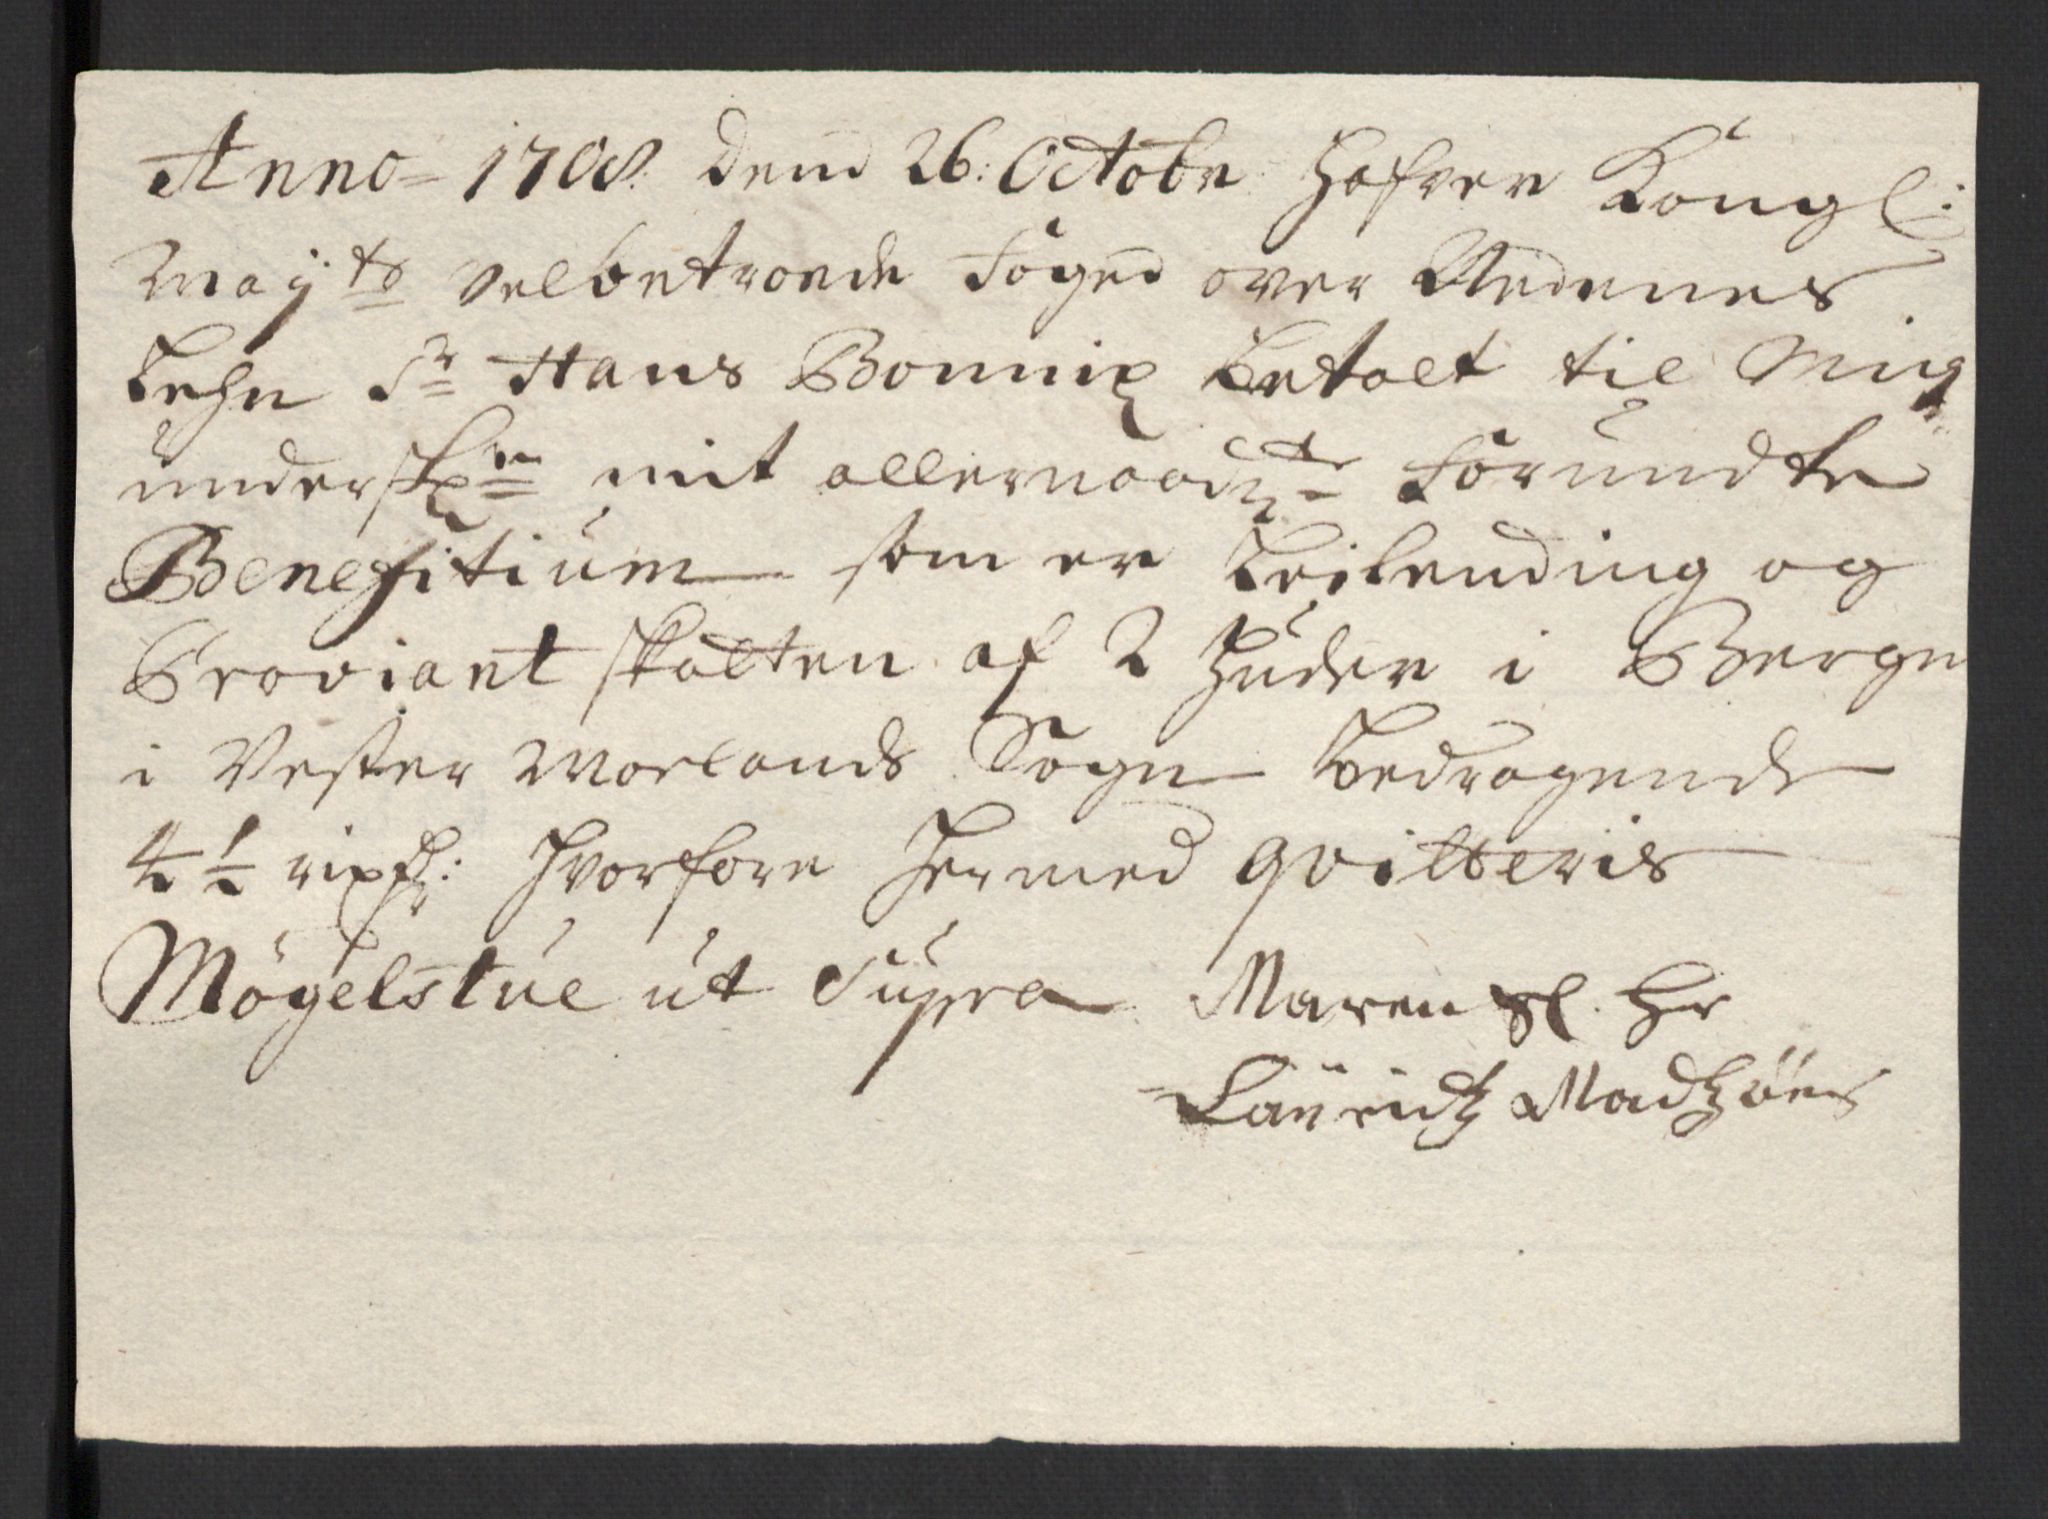 Anno 1708 dend 26: Octobr hafver Kongl:
Mayts velbetroede Foged over Nedenes
Lehn Sr Hans Bonnix betalt til Mig
undersk mit allernaadste forundte
Benefitium som er Leilending og
Proviant skatten af 2 Huder i Berge
i Vester Molands Sogn bedragende
4½ rixdr: hvorfore hermed qvitteris
Mögelstue ut Supra Maren Sl. Hr
Lauridtz Madtzöns